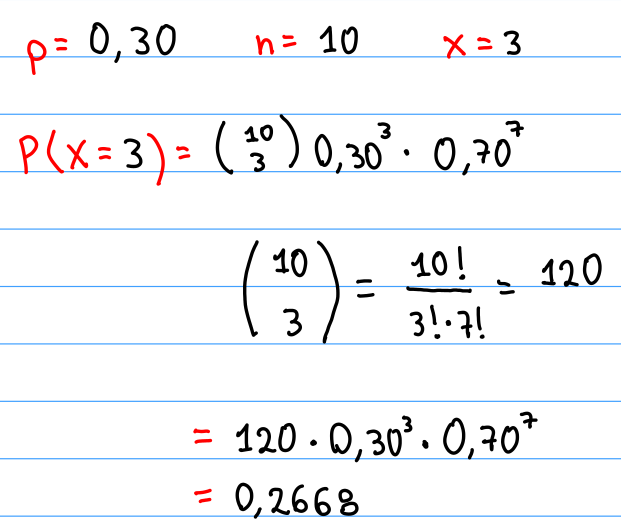 p = 0,30 n = 10 x = 3
P(x = 3) = (10 3) 0,30³ · 0,70⁷
(10 3) = 10! / 3! · 7! = 120
= 120 · 0,30³ · 0,70⁷
= 0,2668